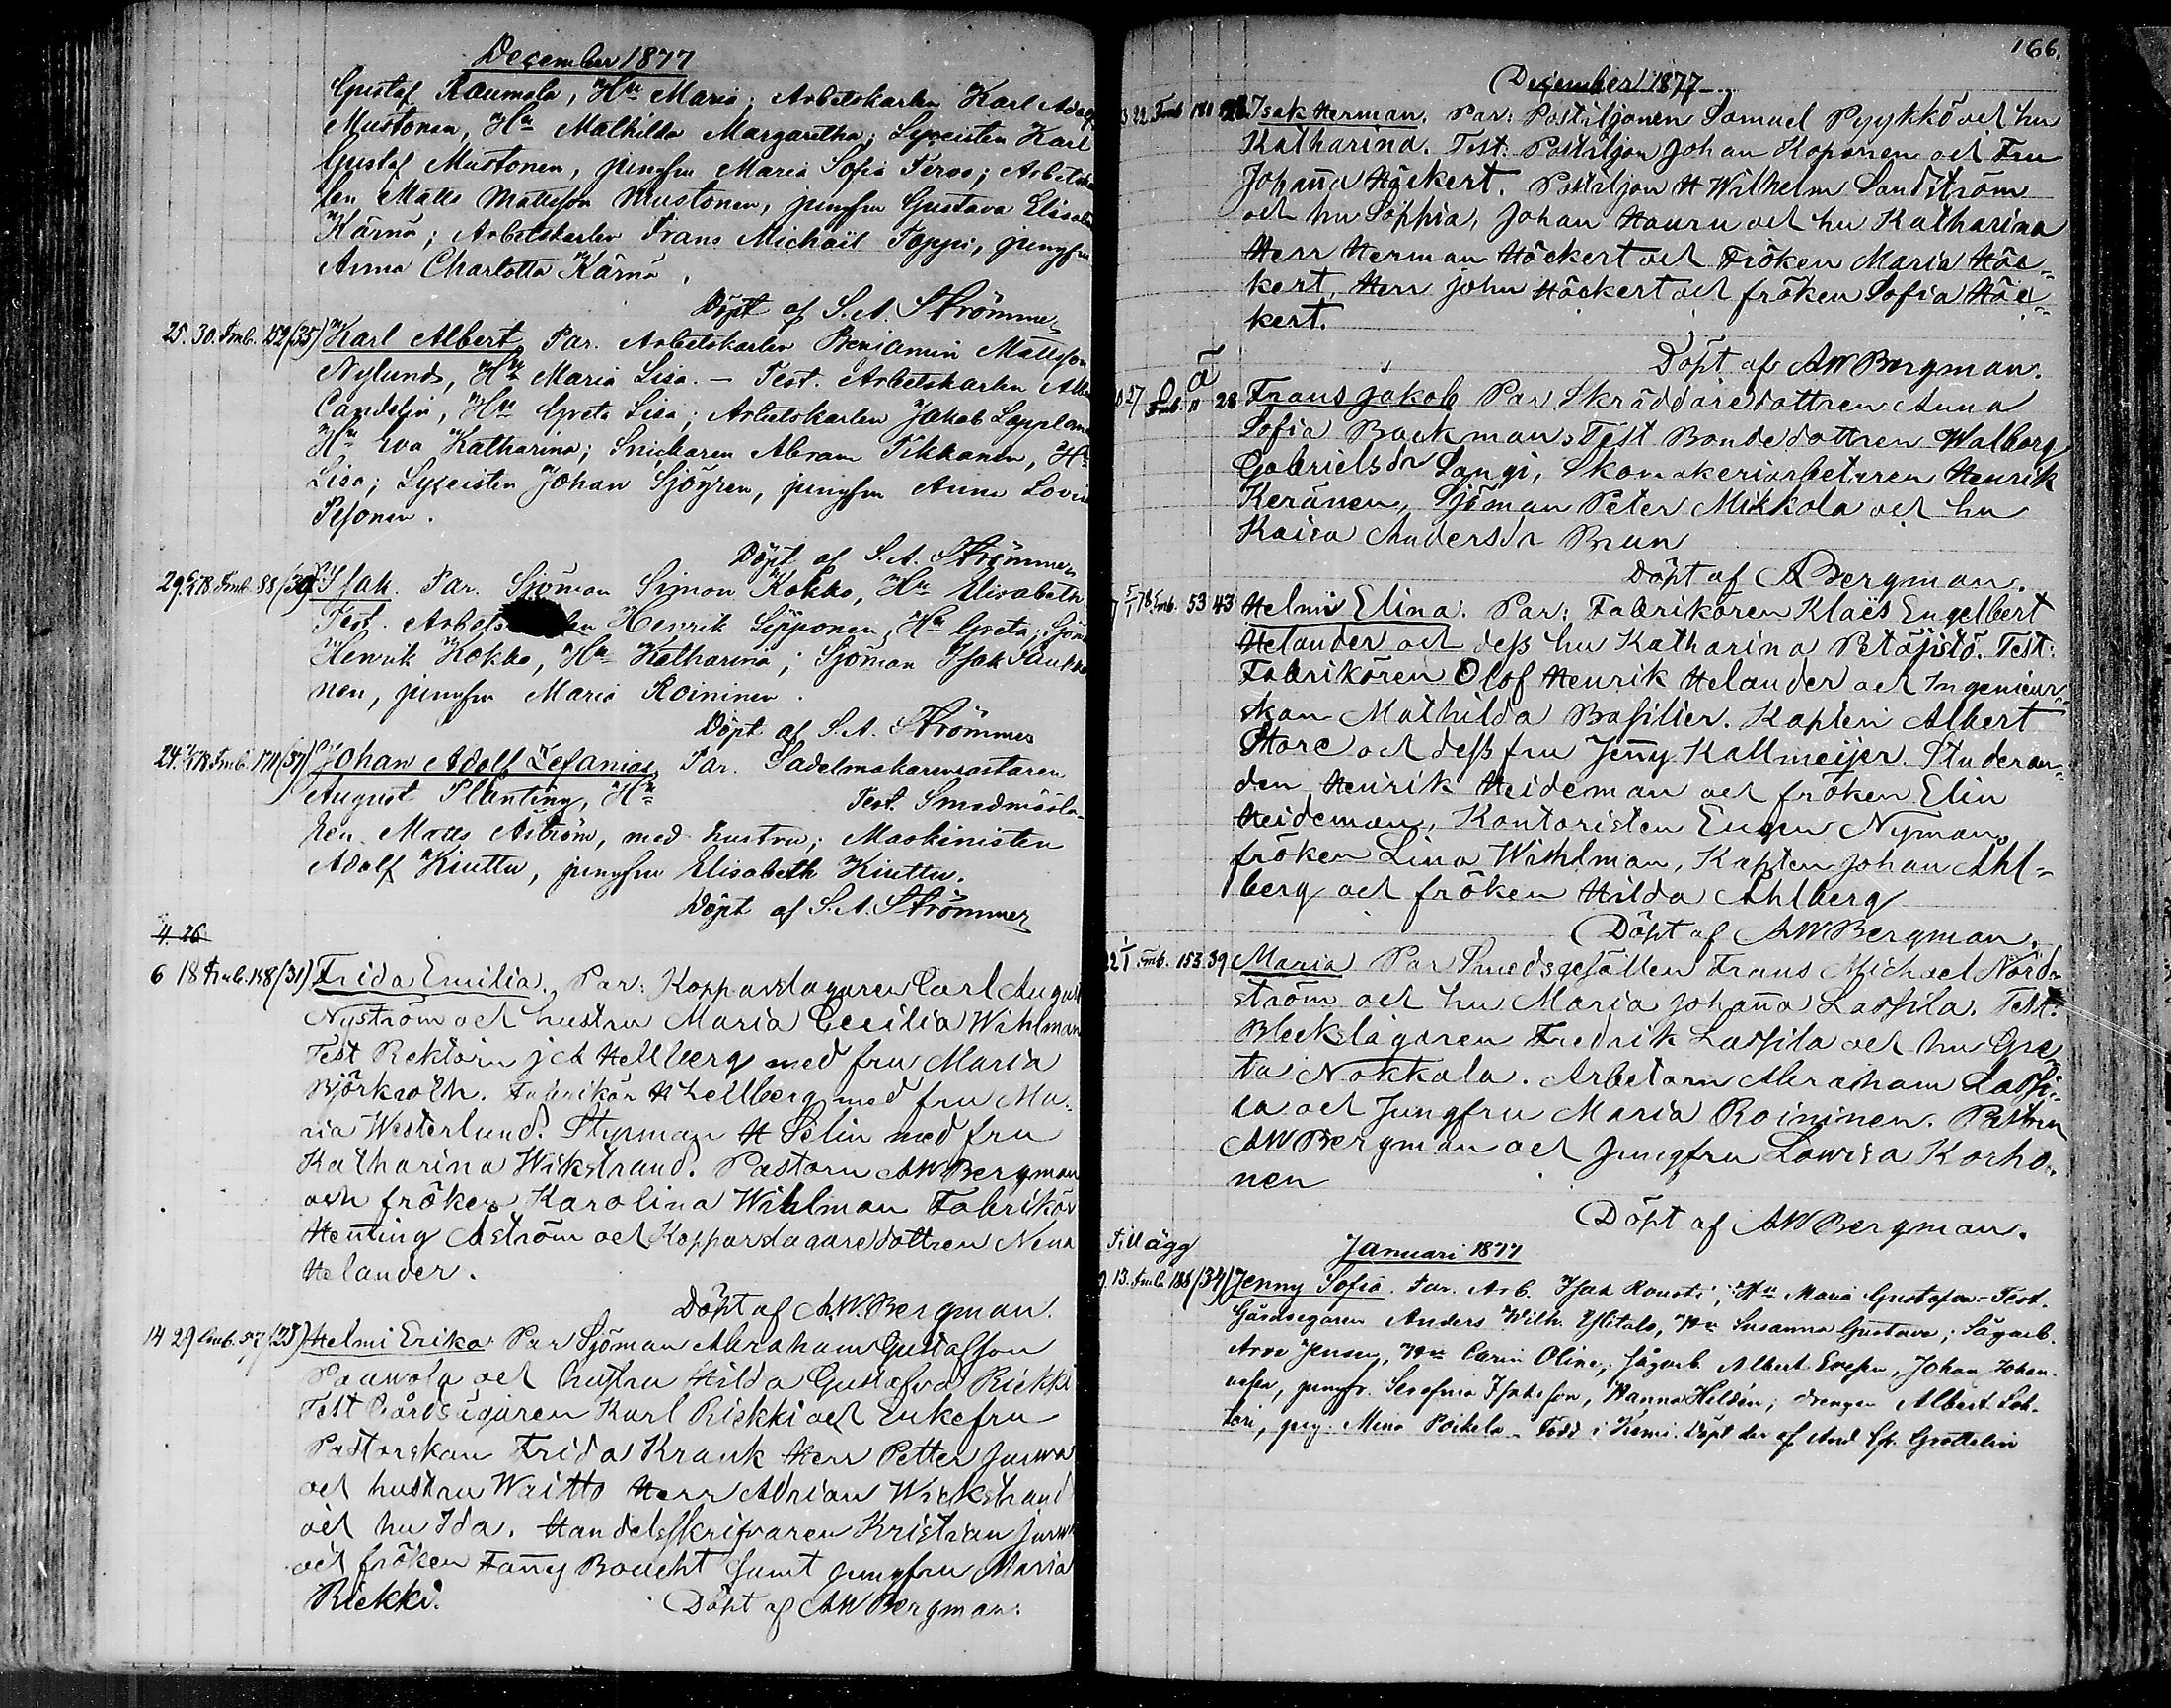 December 1877
Gustaf Raumala, Hu Maria; Arbetskarlen Karl Adolf
Mustonen, Hu Mathilda Margaretha; Lyceisten Karl
Gustaf Mustonen, jungfru Maria Sofia Tervo; Arbetskar
len Matts Mattsson Mustonen, jungfru Gustava Elisabeth
Kärnä; Arbetskarlen Frans Michaël Toppi, jungfru
Anna Charlotta Kärnä.
Döpt af S. A. Strömmer
25. 30. Fmb. 152 (35) Karl Albert, Par. Arbetskarlen Beniamin Mattsson
Nylund, Hu Maria Lisa. – Test. Arbetskarlen
Candelin, Hu Greta Lisa; Arbetskarlen Jakob
Hu Eva Katharina; Snickaren Abram Tikkanen, Hu
Lisa; Lyceisten Johan Sjögren, jungfru Anna
Pesonen.
Döpt af S. A. Strömmer
Isak. Par. Sjöman Simon Kokko, Hu Elisabeth
Test. Henrik Sipponen, Hu Greta;
Henrik Kokko, Hu Katharina; Sjöman Isak
nen, jungfru Maria Roininen.
Döpt af S. A. Strömmer
(37) Johan Adolf Zefanias, Par. Sadelmakaremästaren
August Planting, Hu Test. Smedmästa-
ren Matts Åström, med hustru; Maskinisten
Adolf Kiuttu, jungfru Elisabeth Kiuttu.
Döpt af S. A. Strömmer
4. 26
6 18 Fmb. 158 (31) Frida Emilia. Par: Kopparslagaren Carl August
Nyström och hustru Maria Cecilia Wihlman
Test Rektorn Hellberg med fru Maria
Fabrikör H Zellberg med fru Ma-
ria Westerlund. Styrman H Selin med fru
Katharina Wikstrand. Pastorn AW Bergman
och fröken Karolina Wihlman Fabrikör
Henting Åström och Kopparslagaredottren
Helander.
Döpt af A.W. Bergman.
14 29 Fmb. 57 (28) Helmi Erika Par Sjöman Abraham Gustafsson
Paavola och hustru Hilda Gustafva Riekki
Test Gårdsägaren Karl Riekki och Enkefru
Pastorskan Frida Krank Herr Petter
och hustru Herr Adrian Wickstrand
och hu Ida. Handelsskrifvaren Kristian
och fröken Fanny Boucht samt jungfru Maria
Riekki.
Döpt af AW Bergman.
166.
December 1877
22 Fmb 181 Isak Herman. Par: Postiljonen Samuel Pyykkö och hu
Katharina. Test. Postiljon Johan Koponen och Fru
Johanna Höckert. Postiljon H Wilhelm Sandström
och hu Sophia, Johan Hauru och hu Katharina
Herr Herman Höckert och Fröken Maria Höc-
kert, Herr John Höckert och fröken Sofia Höc-
kert.
Döpt af AW Bergman.
27 28 Frans Jakob Par Skräddaredottren Anna
Sofia Backman. Test Bondedottren Walborg
Gabrielsdr Sangi, Skomakeriarbetaren Henrik
Keränen, Sjöman Peter Mikkola och hu
Kaisa Andersdr Brun
Döpt af A Bergman.
5/1 78 Fmb. 53 43 Helmi Elina. Par: Fabrikören Klaës Engelbert
Helander och dess hu Katharina Petäjistö. Test:
Fabrikören Olof Henrik Helander och Ingenieur-
skan Mathilda Basilier. Kapten Albert
Store och dess fru Jenny Kallmeijer. Studeran-
den Henrik Heideman och fröken Elin
Heideman, Kontoristen Eugen Nyman
fröken Lina Wihlman, Kapten Johan Ahl-
berg och fröken Hilda Ahlberg
Döpt af AW Bergman.
Fmb. 153 39 Maria Par Smedsgesällen Frans Michael Nord-
ström och hu Maria Johanna Lassila. Test:
Bleckslagaren Fredrik Lassila och hu Gre-
ta Nokkala. Arbetarn Abraham Lassi-
la och Jungfru Maria Roininen. Pastorn
AW Bergman och Jungfru Lowisa Korho-
nen
Döpt af AW Bergman.
Tillägg
Januari 1877
13. Fmb. 186 (34) Jenny Sofia. Par. Arb. Isak Rousti, Hu Maria Gustafva – Test.
Gårdsegaren Anders Wilh. Ylitalo, Hu Susanna Gustava; Sågarb.
Arve Jensen, Hu Carin Oline; Sågarb. Albert Johan Johan-
nesen, jungfr. Serafina Isaksson, Hanna Hildén; drengen Albert Loh-
Mina Poikela – Född i Kemi. Döpt der af